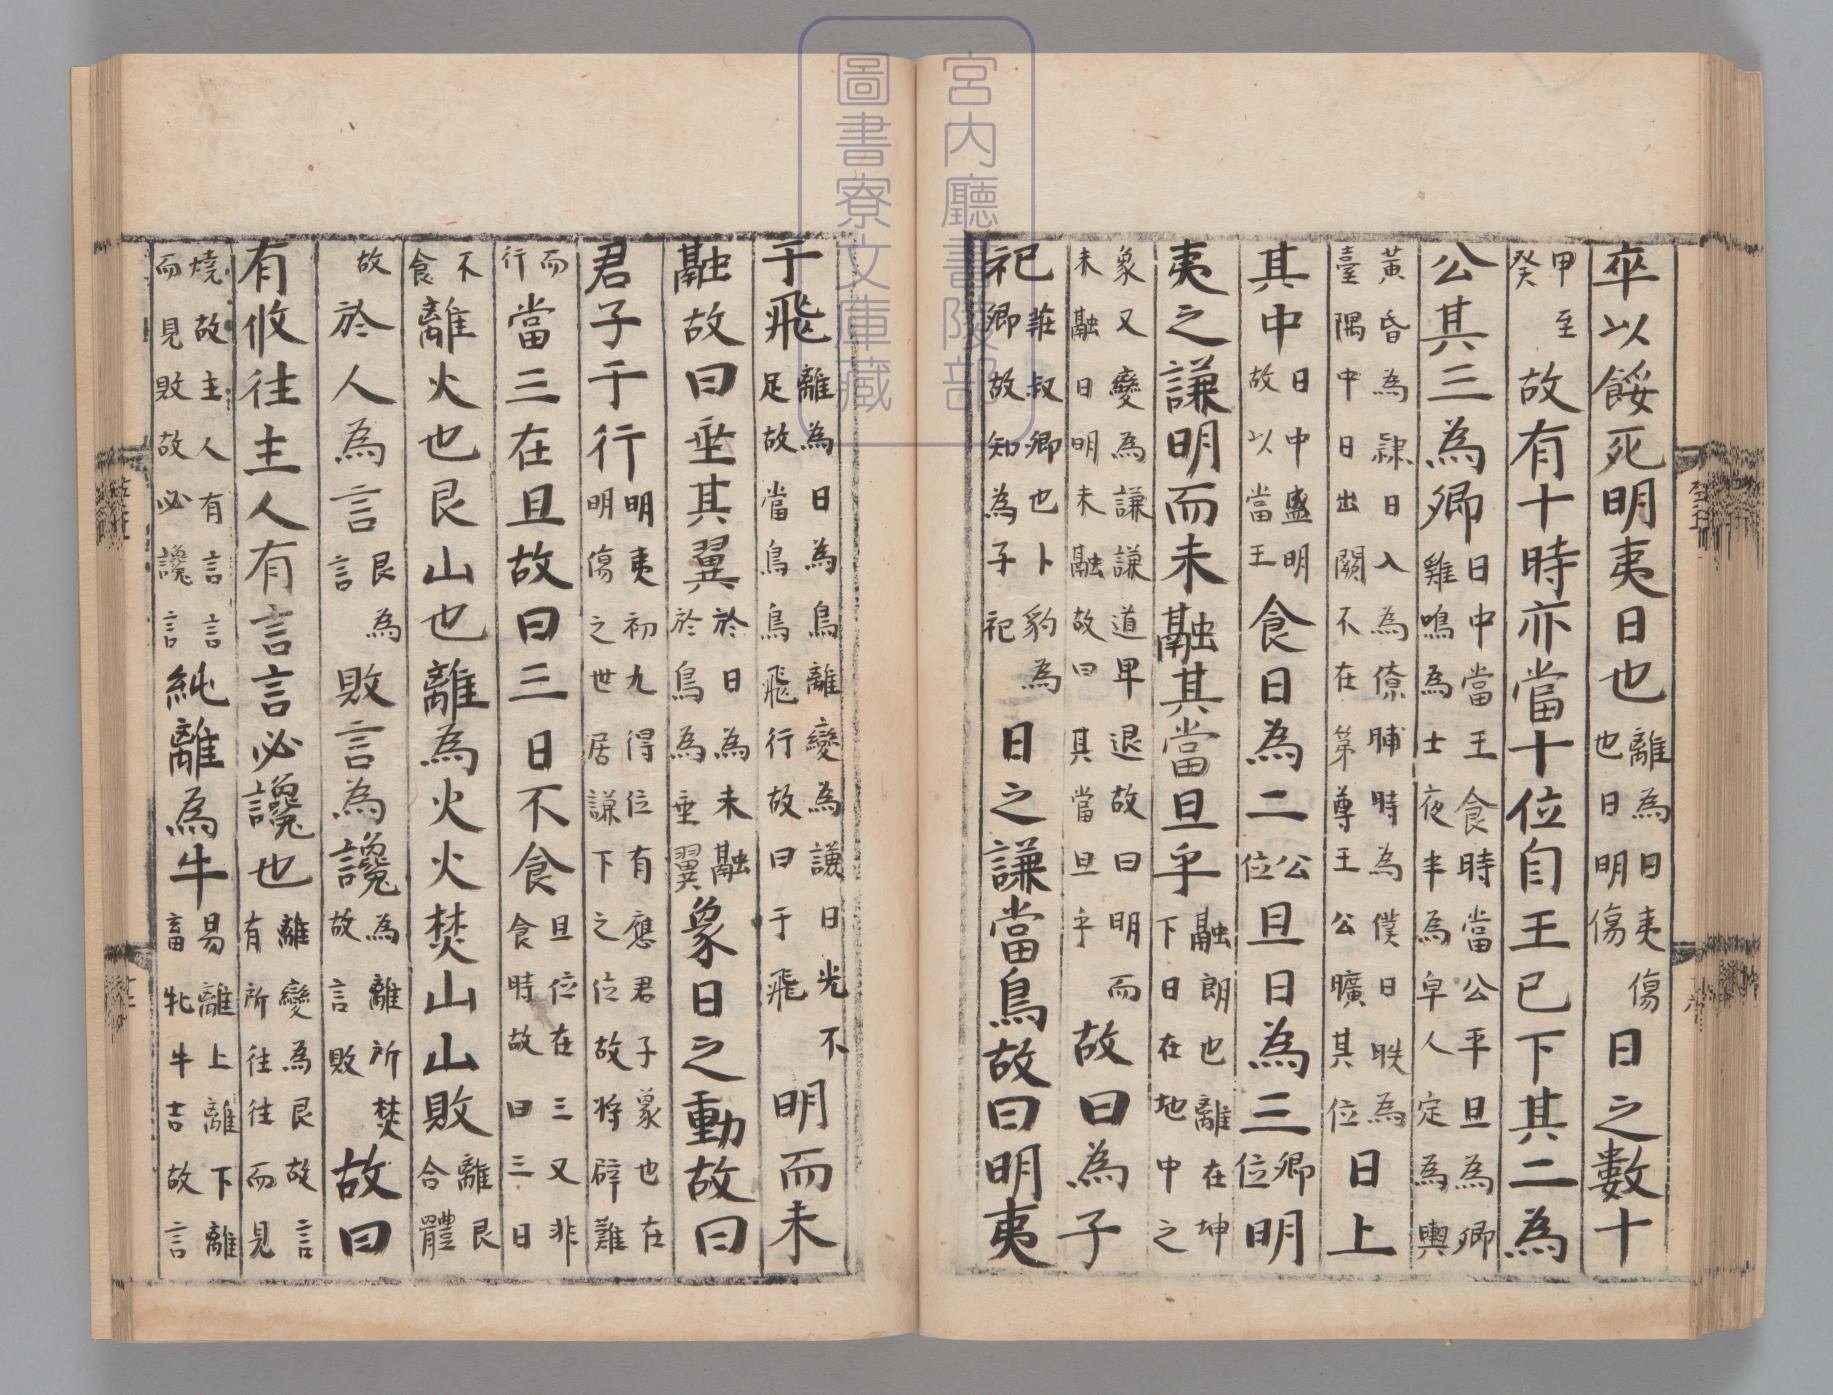 卒以餒死明夷日也離為日夷傷也日明傷日之數十
甲至癸故有十時亦當十位自王已下其二為
公其三為卿日中當王食時當公平旦為卿雞鳴為士夜半為皁人定為輿
黃昏為隸日入為僚晡時為僕日昳為臺隅中日出闕不在第尊王公曠其位日上
其中日中盛明故以當王食日為二公位旦日為三卿位明
夷之謙明而未融其當旦乎融朗也離在坤下日在地中之
象又變為謙謙道卑退故曰明而未融日明未融故曰其當旦乎故曰為子
祀莊叔卿也卜豹為卿故知為子祀日之謙當鳥故曰明夷
于飛離為日為鳥離變為謙日光不足故當鳥鳥飛行故曰于飛明而未
融故曰垂其翼於日為未融於鳥為垂翼象日之動故曰
君子于行明夷初九得位有應君子象也在明傷之世居謙下之位故將辟難
而行當三在旦故曰三日不食旦位在三又非食時故曰三日
不食離火也艮山也離為火火焚山山敗離艮合體
故於人為言艮為言敗言為讒為離所焚故言敗故曰
有攸往主人有言言必讒也離變為艮故言有所往往而見
燒故主人有言言而見敗故必讒言純離為牛易離上離下離畜牝牛吉故言
宮內廳書陵部
圖書寮文庫藏